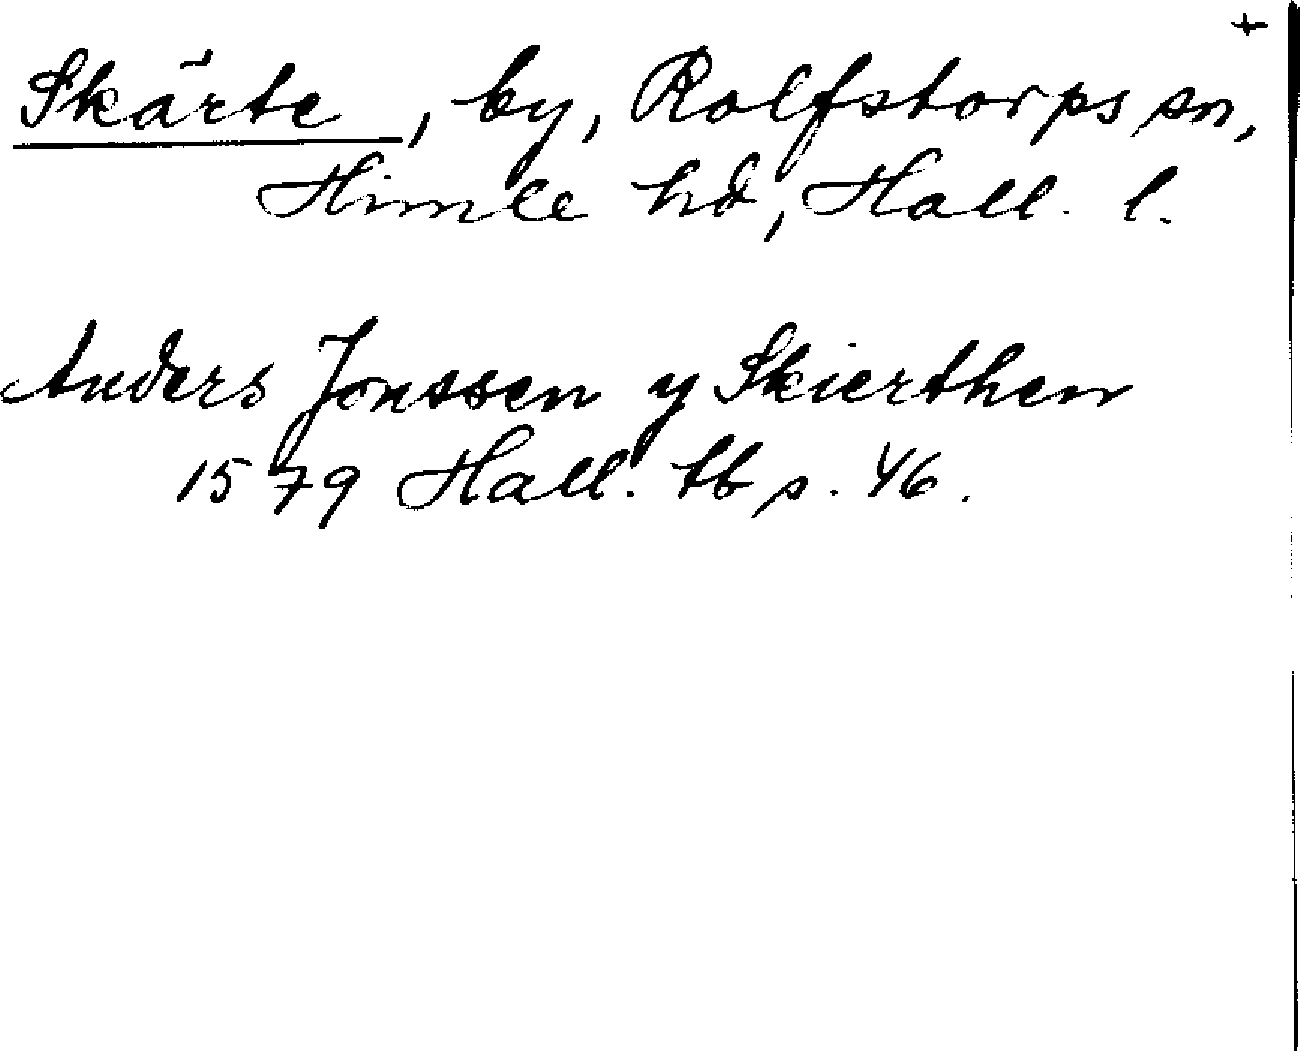 +
Skärte, by, Rolfstorps sn,
Himle hd, Hall. l.
Anders Jonssen y Skierthen
1579 Hall. tb s. 46.